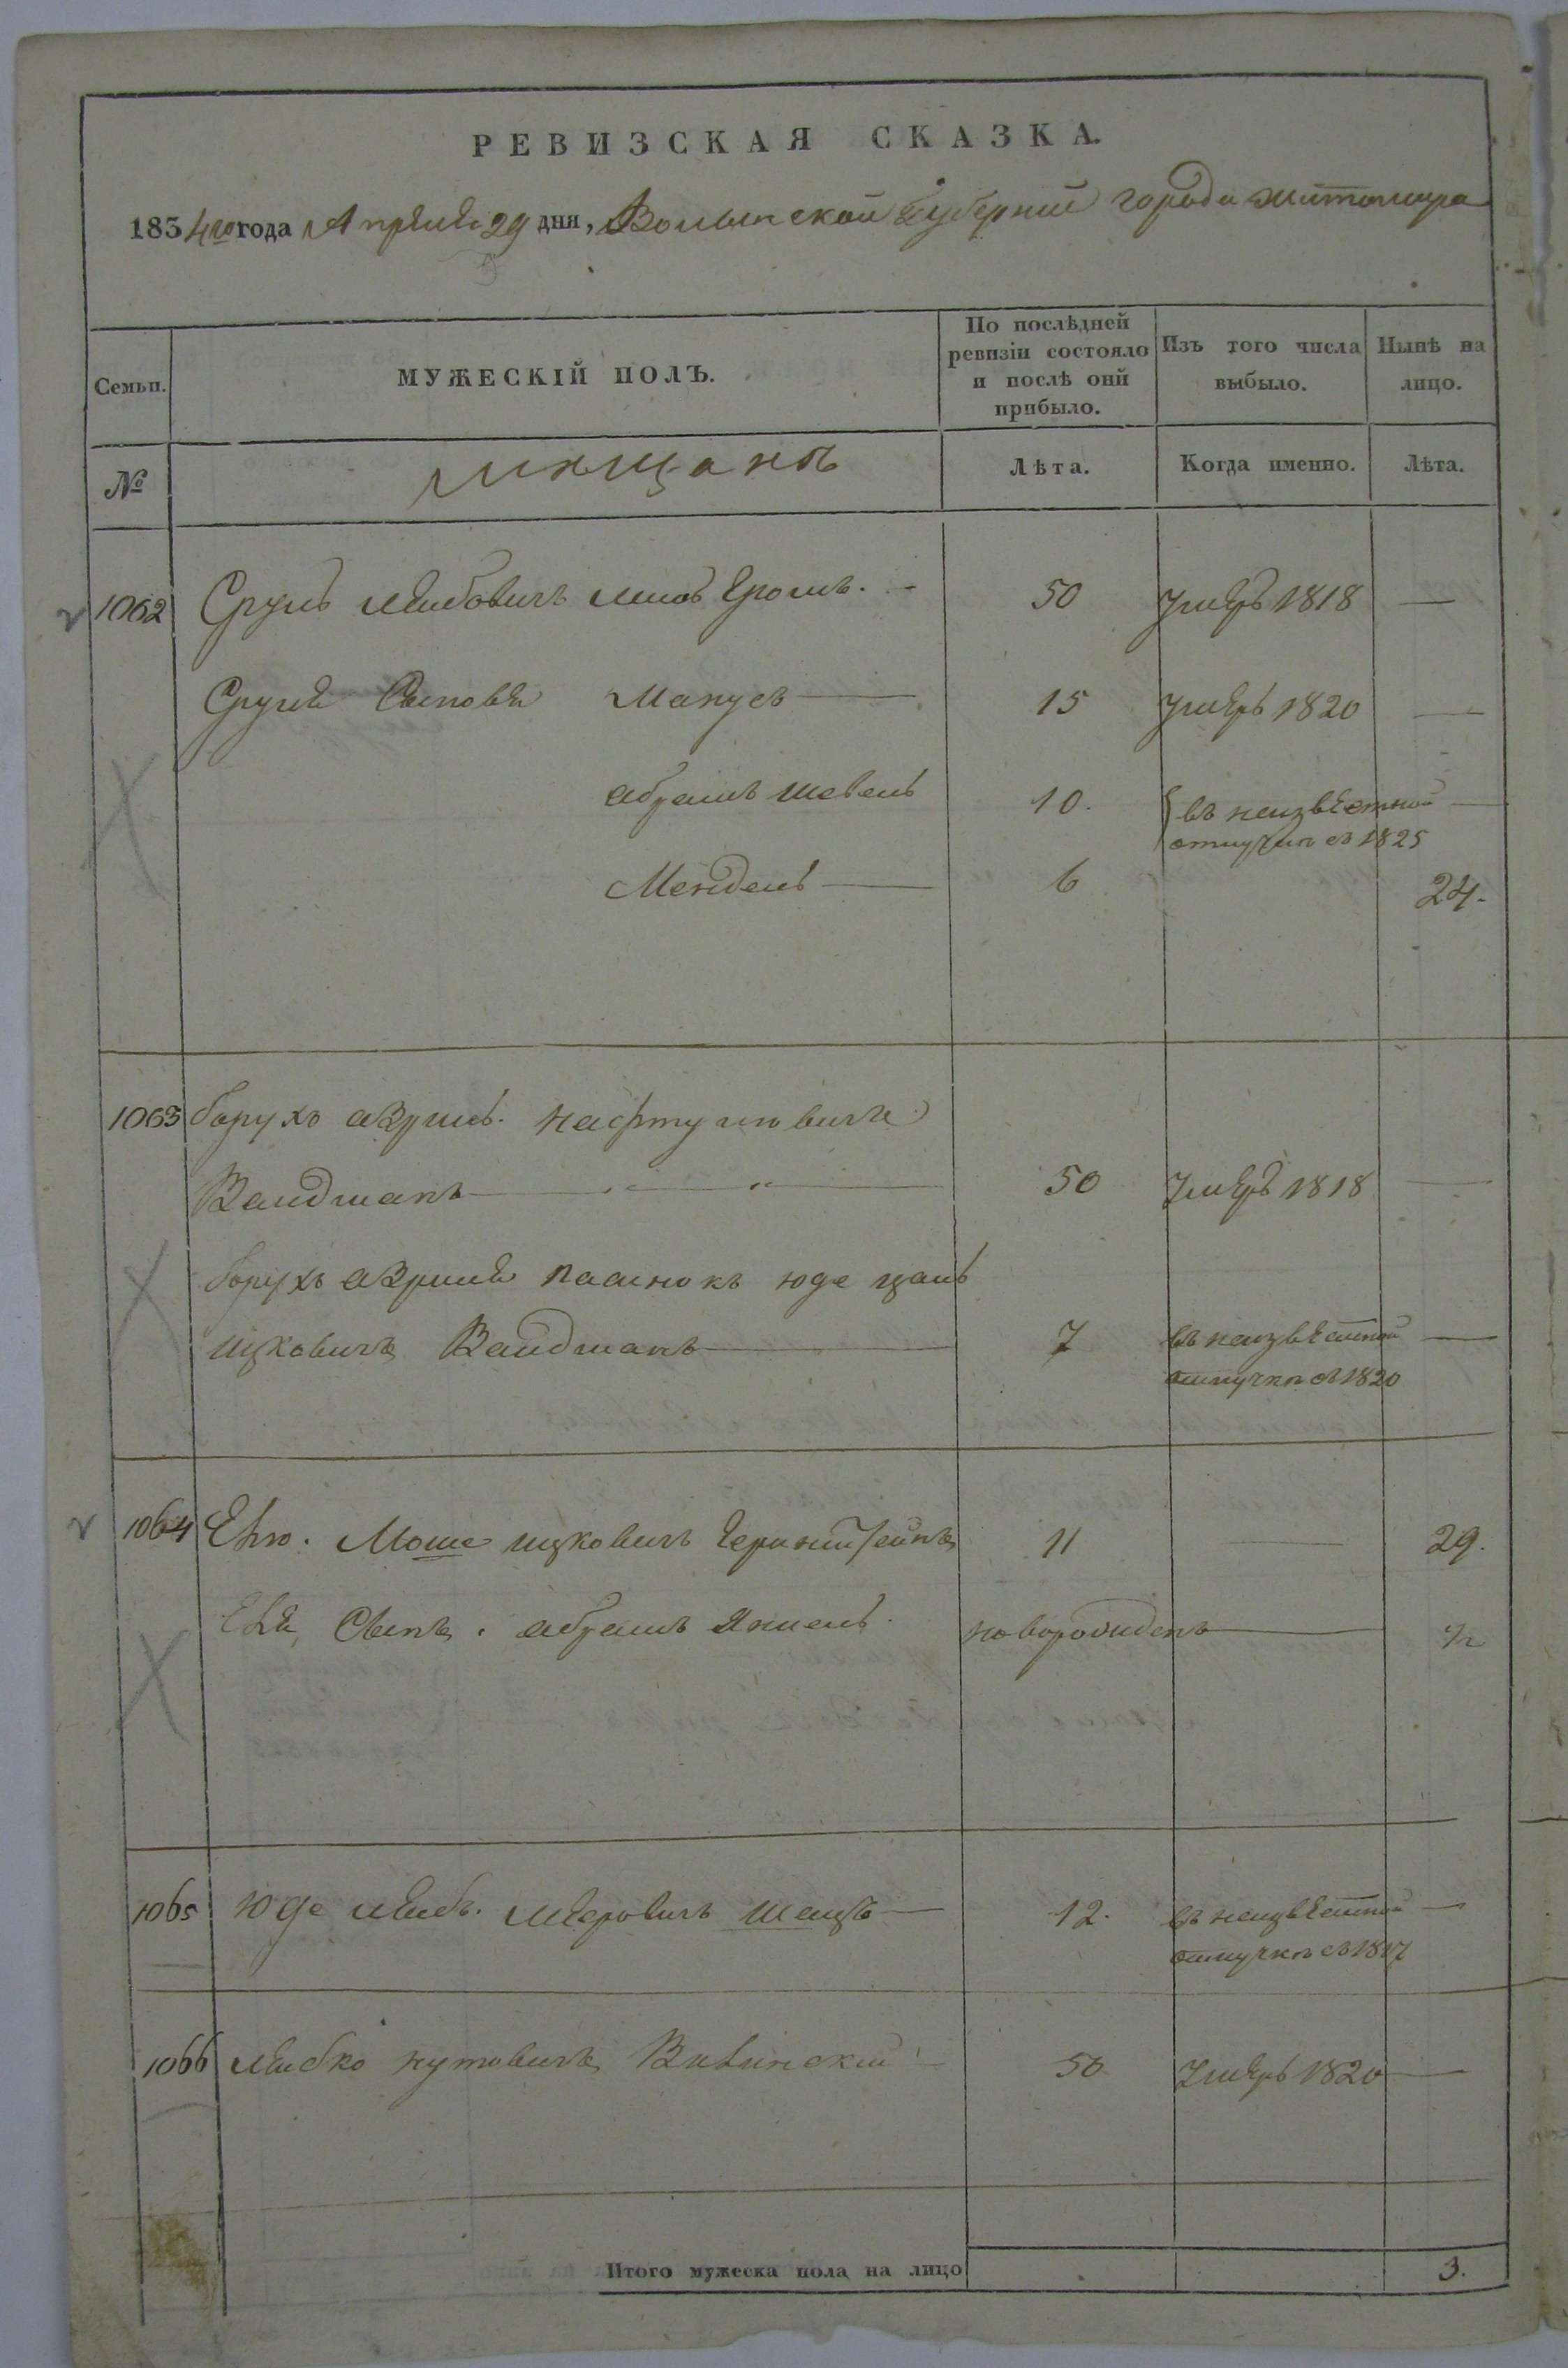 РЕВИЗСКАЯ СКАЗКА.
1834го года Апреля 29 дня, Волынской Губерний города Житомира
Семьи. МУЖЕСКІЙ ПОЛЪ. По послѣдней ревизіи состояло и послѣ оній прибыло. Изъ того числа выбыло. Нынѣ на лицо.
№ мѣщанѣ Лѣта. Когда именно. Лѣта.
1062 Сруль Лейбовичъ 50 умеръ 1818 —
Сруля Сыновья Манусъ — 15 умеръ 1820 —
абрамъ Шевель 10. въ неизвестной —
отлучкѣ съ 1825
Мендель — 6 24.
1063 борухъ Нафтуловичъ
Вайдманъ — 50 умеръ 1818 —
борухъ пасинокъ юде
ицковичъ Вайдманъ — 7 въ неизвестной —
отлучкѣ съ 1820
1064 Ею. Моше ицковичъ 11 — 29.
Ея Сынъ. абрамъ новорожденъ — ½
1065 юде Лейбъ. Меровичъ — 12. въ неизвестной —
отлучкѣ съ 1817
1066 Лейбко нутовичъ 50 умеръ 1820 —
Итого мужеска пола на лицо 3.